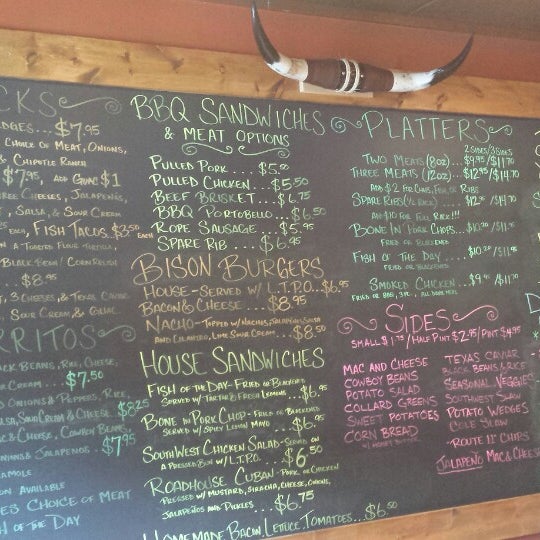 CKS
DGES... $7.95
CHOICE OF MEAT, ONIONS,
& CHIPOTLE RANCH
$7.95, ADD GUAC $1
CHEESES, JALAPEÑOS,
SALSA, & SOUR CREAM
EACH, FISH TACOS.$3.50 EACH
A TOASTED FLOUR TORTILLA,
BLACK BEAN/CORN RELISH
...$8.95
3 CHEESES, & TEXAS CAVIAR
SOUR CREAM & GUAC
RRITOS
ACK BEANS, RICE, CHEESE,
CREAM... $7.50
ONIONS & PEPPERS, RICE,
SALSA, SOUR CREAM & CHEESE. $8.25
& CHEESE, COWBOY BEANS,
& JALAPENOS... $7.95
AMOLE
ON AVAILABLE
ES CHOICE OF MEAT
H OF THE DAY
BBQ SANDWICHES
& MEAT OPTIONS
PULLED PORK....$5.00
PULLED CHICKEN...$5.50
BEEF BRISKET...$6.75
BBQ PORTOBELLO...$6.50
ROPE SAUSAGE...$5.95
SPARE RIB...$6.95
BISON BURGERS
HOUSE-SERVED W/ L.T.P.O...$6.95
BACON & CHEESE....$8.95
NACHO-TOPPED W/ NACHOS, JALAPENOS, SALSA
AND CILANTRO, LIME SOUR CREAM...$8.50
HOUSE SANDWICHES
FISH OF THE DAY-FRIED OR BLACKENED
SERVED W/ TARTAR & FRESH LEMONS...$6.95
BONE IN PORK CHOP-FRIED OR BLACKENED
SERVED W/ SPICY LEMON MAYO...$6.95
SOUTHWEST CHICKEN SALAD-SERVED ON
A PRESSED BUN W/ L.T.P.O....$6.50
ROADHOUSE CUBAN-PORK OR CHICKEN
PRESSED W/ MUSTARD, SIRACHA, CHEESE, ONIONS,
JALAPEÑOS AND PICKLES...$6.75
HOMEMADE BACON, LETTUCE, TOMATOES...$6.50
PLATTERS
2 SIDES/3 SIDES
TWO MEATS (8oz)...$9.95/$11.70
THREE MEATS (12oz)...$12.95/$14.70
ADD $2 FOR RIBS
SPARE RIBS (1/2 RACK)....$12.95/$14.70
ADD $10 FOR FULL RACK!!!
BONE IN PORK CHOPS...
FRIED OR BLACKENED
FISH OF THE DAY....
FRIED OR BLACKENED
SMOKED CHICKEN...
FRIED OR BBQ
SIDES
SMALL $1.75/HALF PINT $2.95/PINT $4.95
MAC AND CHEESE
COWBOY BEANS
POTATO SALAD
COLLARD GREENS
SWEET POTATOES
CORN BREAD
W/ HONEY BUTTER
TEXAS CAVIAR
BLACK BEANS & RICE
SEASONAL VEGGIES
SOUTHWEST SLAW
POTATO WEDGES
COLE SLAW
"ROUTE 11" CHIPS
JALAPEÑO MAC & CHEESE